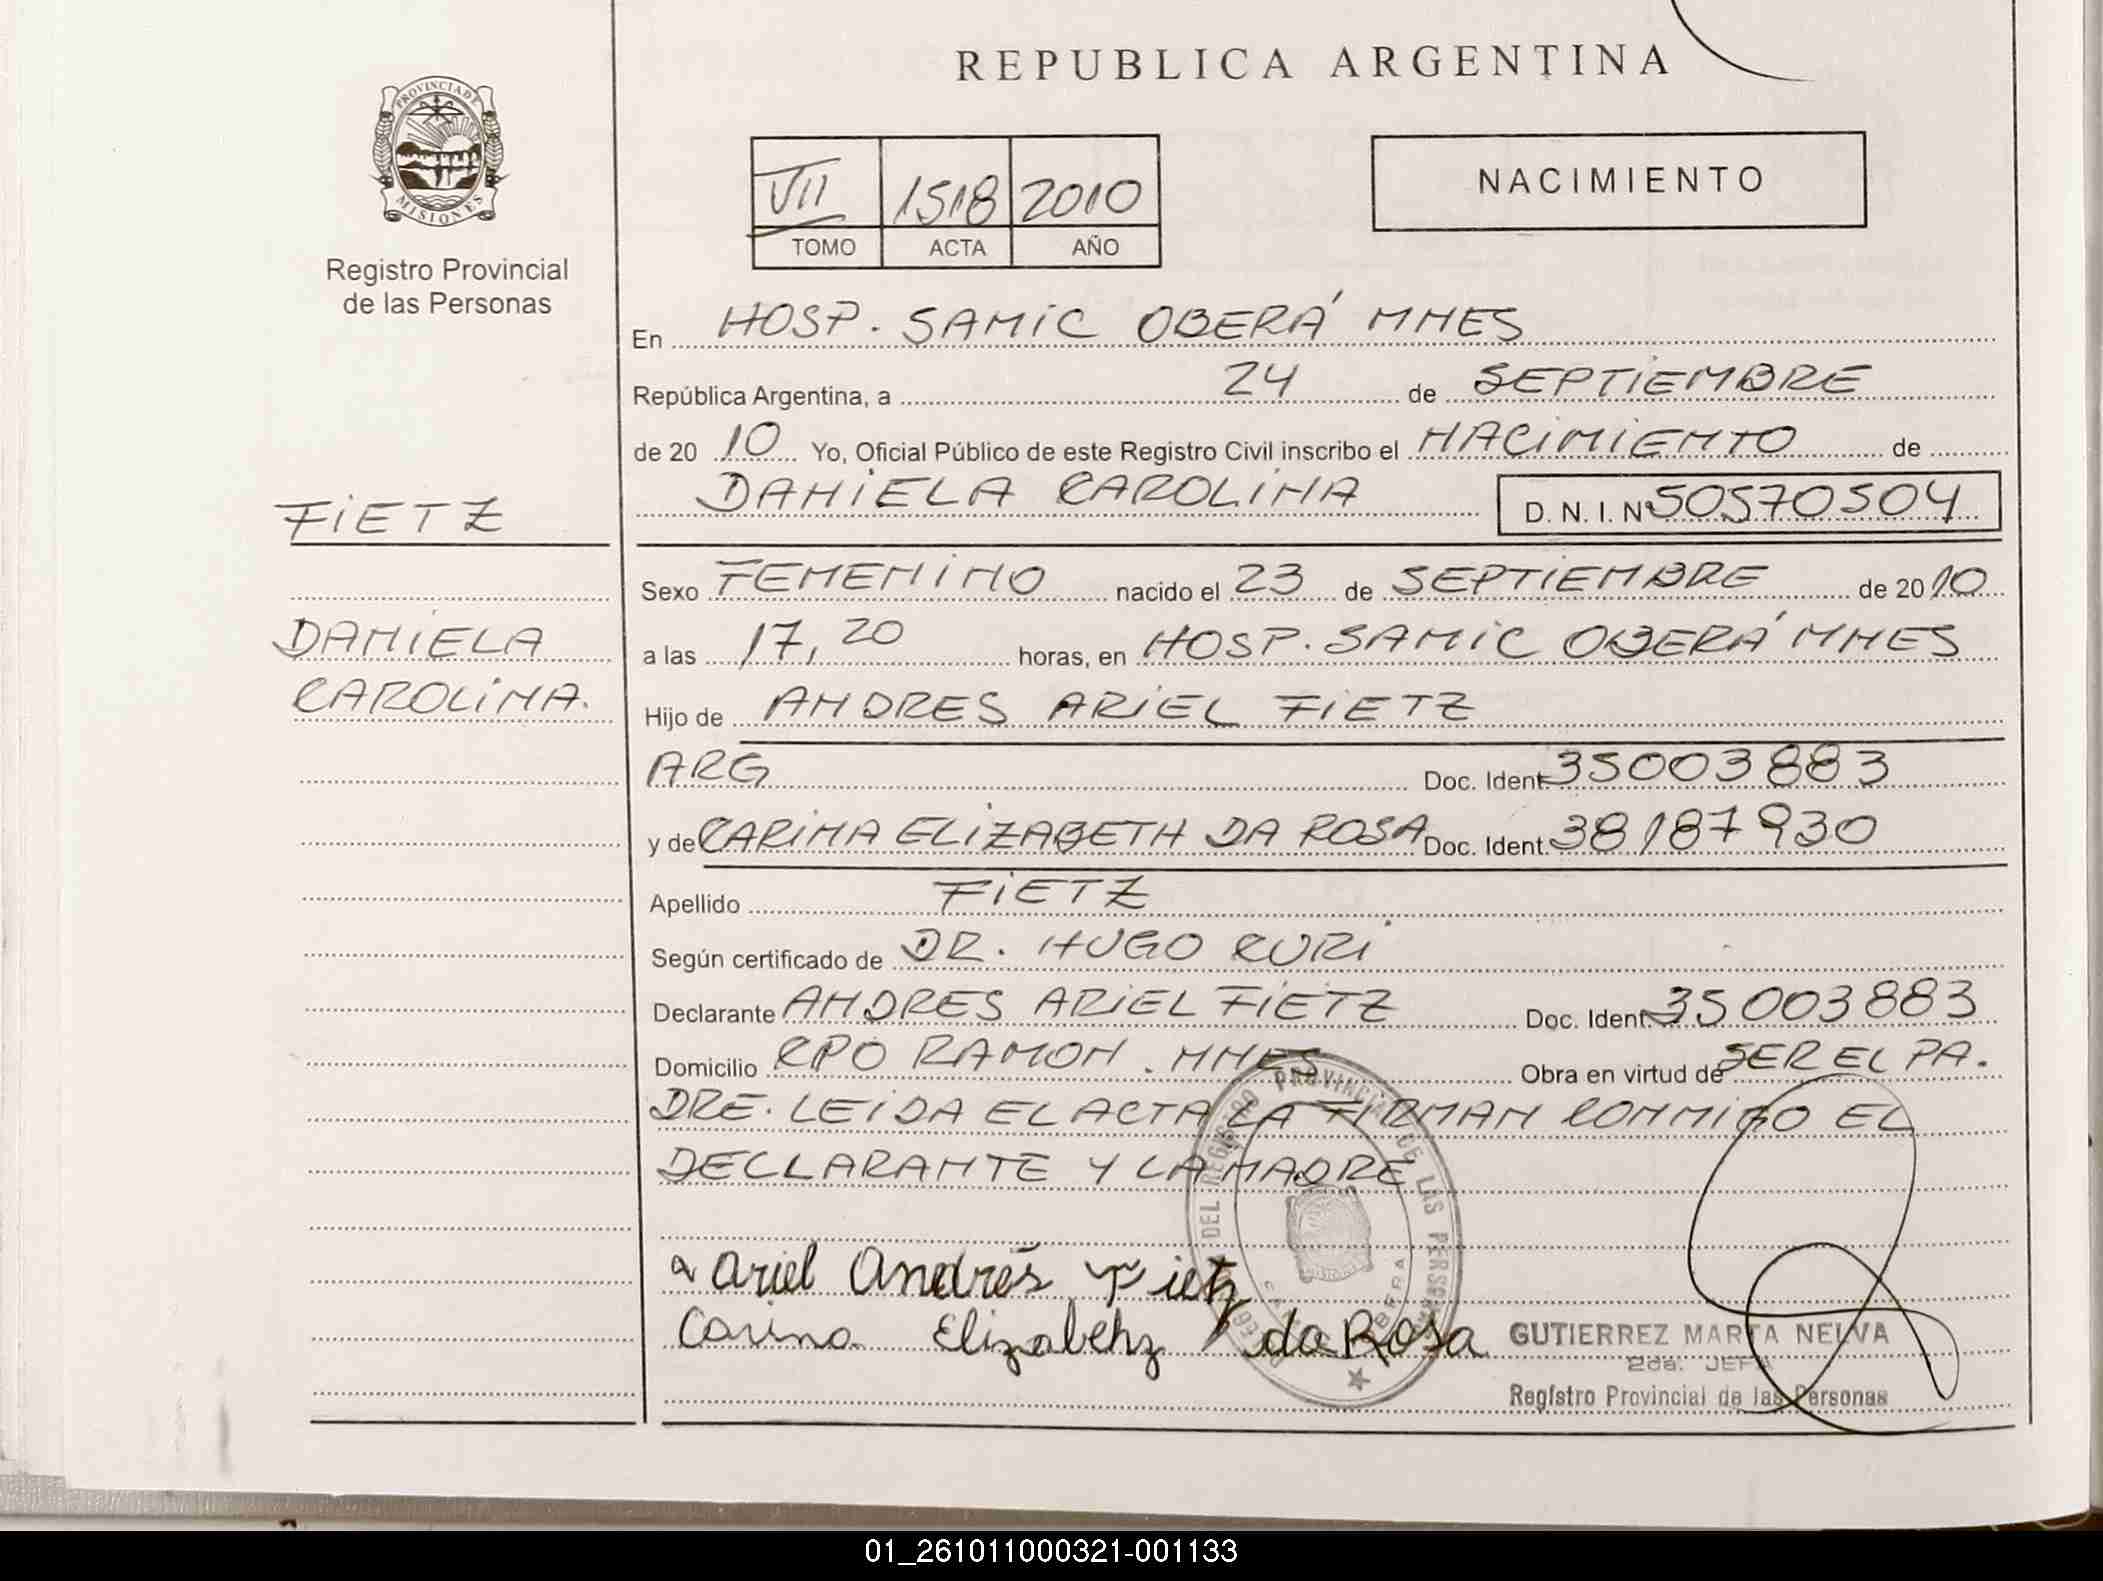 REPUBLICA ARGENTINA
PROVINCIA DE
MISIONES
Registro Provincial
de las Personas
VII 1518 2010
TOMO ACTA AÑO
NACIMIENTO
En HOSP. SAMIC OBERÁ MNES
República Argentina, a 24 de SEPTIEMBRE
de 20 10 Yo, Oficial Público de este Registro Civil inscribo el NACIMIENTO de
DANIELA CAROLINA D. N. I. Nº 50570504
FIETZ
DANIELA
CAROLINA.
Sexo FEMENINO nacido el 23 de SEPTIEMBRE de 20 10
a las 17,20 horas, en HOSP. SAMIC OBERÁ MNES
Hijo de ANDRES ARIEL FIETZ
ARG Doc. Ident. 35003883
y de CARINA ELIZABETH DA ROSA Doc. Ident. 38187930
Apellido FIETZ
Según certificado de DR. HUGO
Declarante ANDRES ARIEL FIETZ Doc. Ident. 35003883
Domicilio CPO RAMON. MNES Obra en virtud de SER EL PA.
DRE. LEIDA EL ACTA LA FIRMAN CONMIGO EL
DECLARANTE Y LA MADRE
Ariel Andrés Fietz
Carina Elizabehz da Rosa
GUTIERREZ MARTA NELVA
2da. JEFA
Registro Provincial de las Personas
01_261011000321-001133